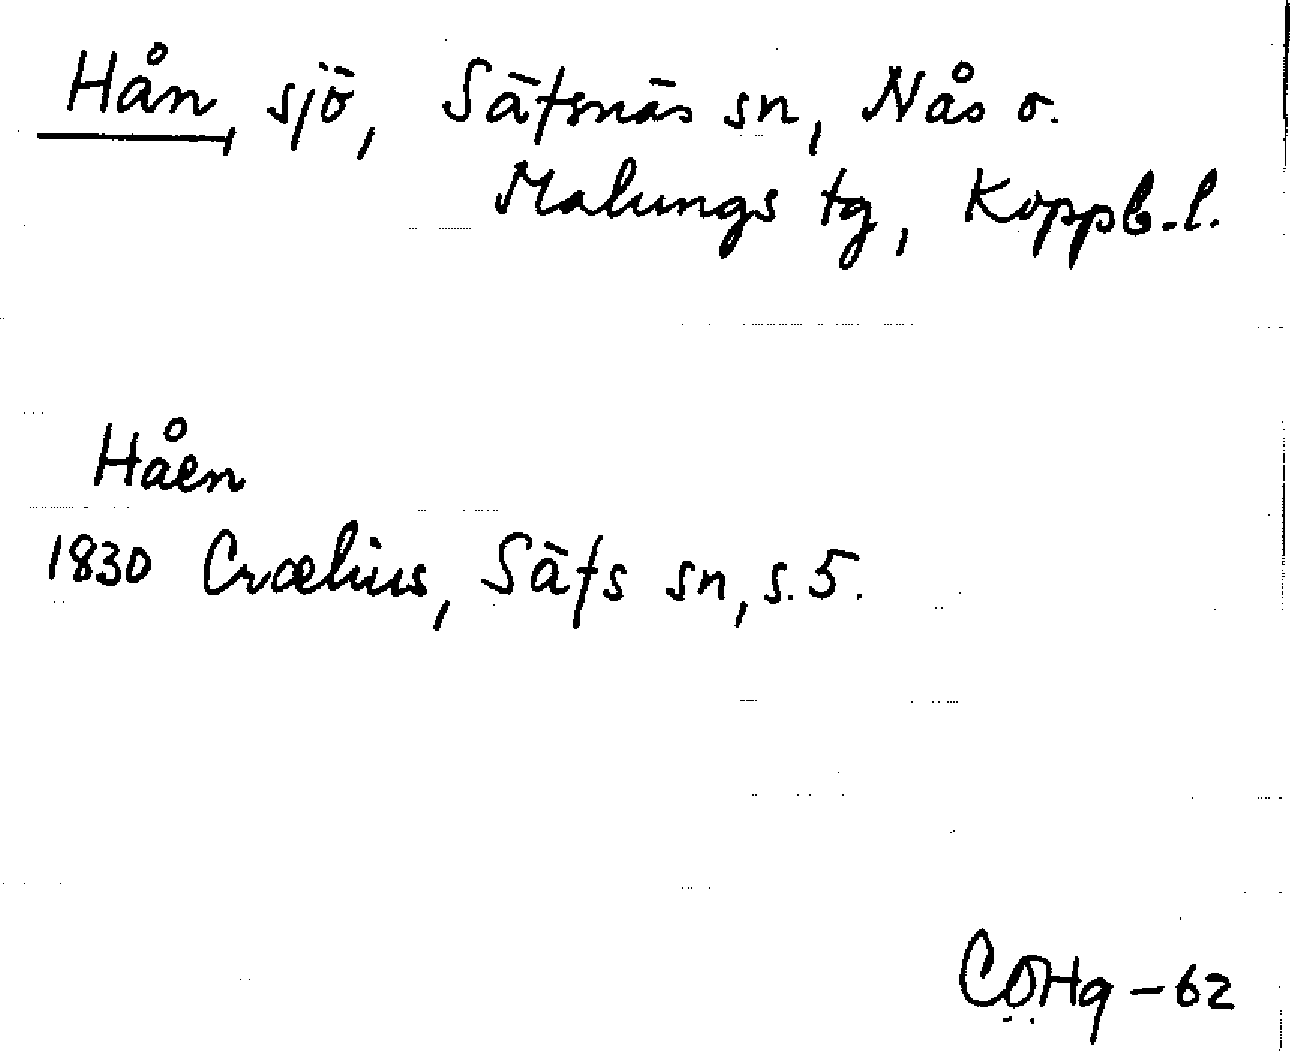 Hån, sjö, Säfsnäs sn, Nås o.
Malungs tg, Koppb.l.
Håen
1830 Crælius, Säfs sn, s. 5.
CÖHg - 62